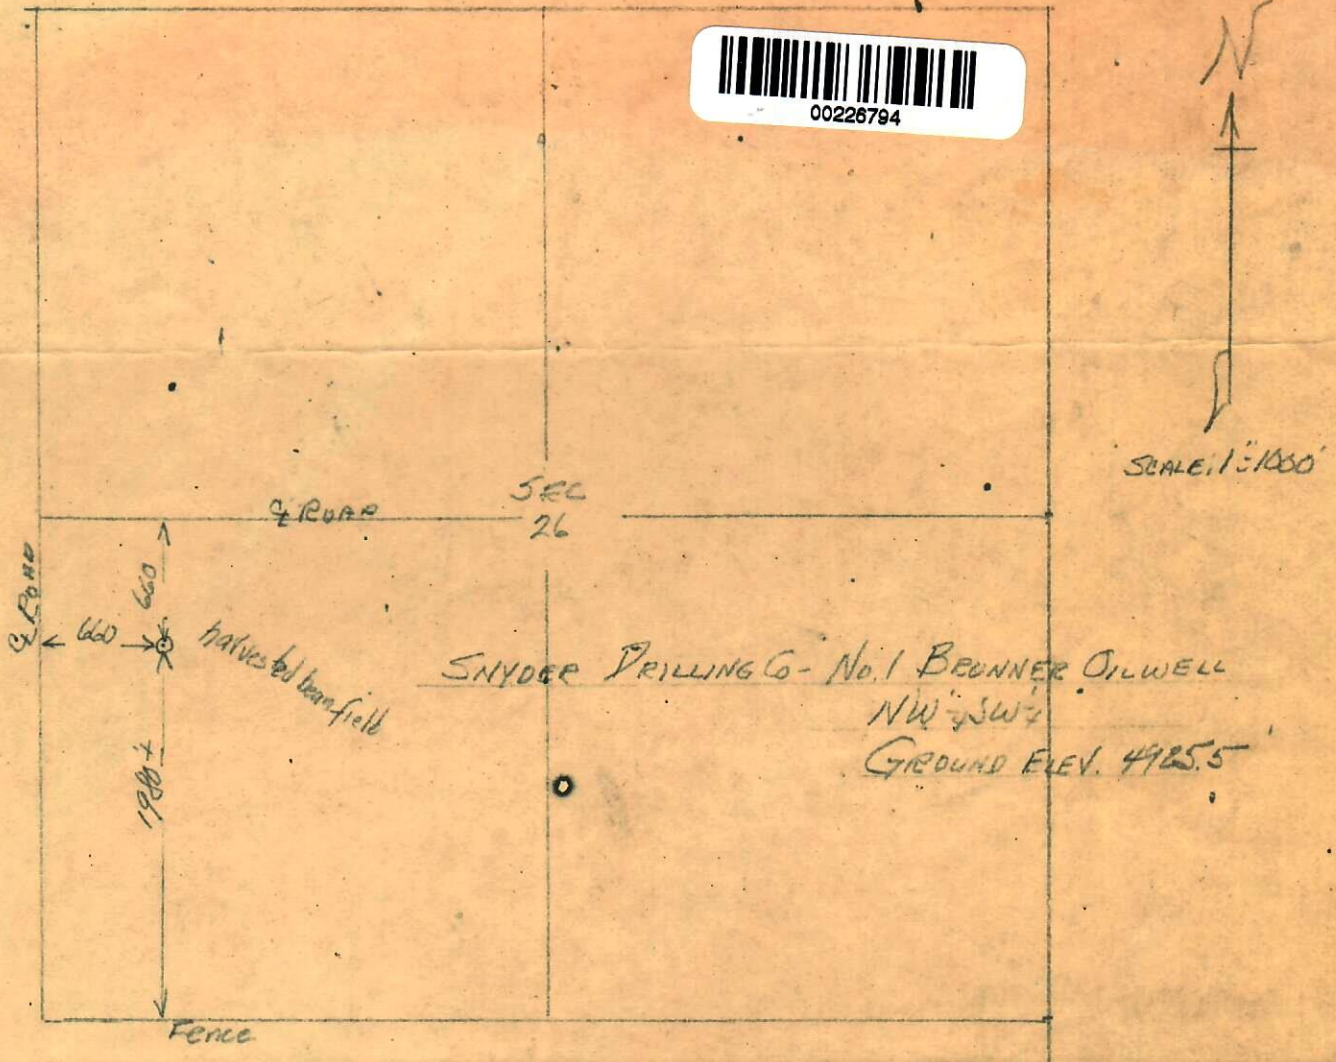 N
00226794
SCALE: 1"=1000'
SEC
26
℄ ROAD
℄ ROAD
660
660
harvested beanfield
SNYDER DRILLING Co - No. 1 BRUNNER OILWELL
NW ¼ SW ¼
GROUND ELEV. 4925.5'
1980 ±
Fence